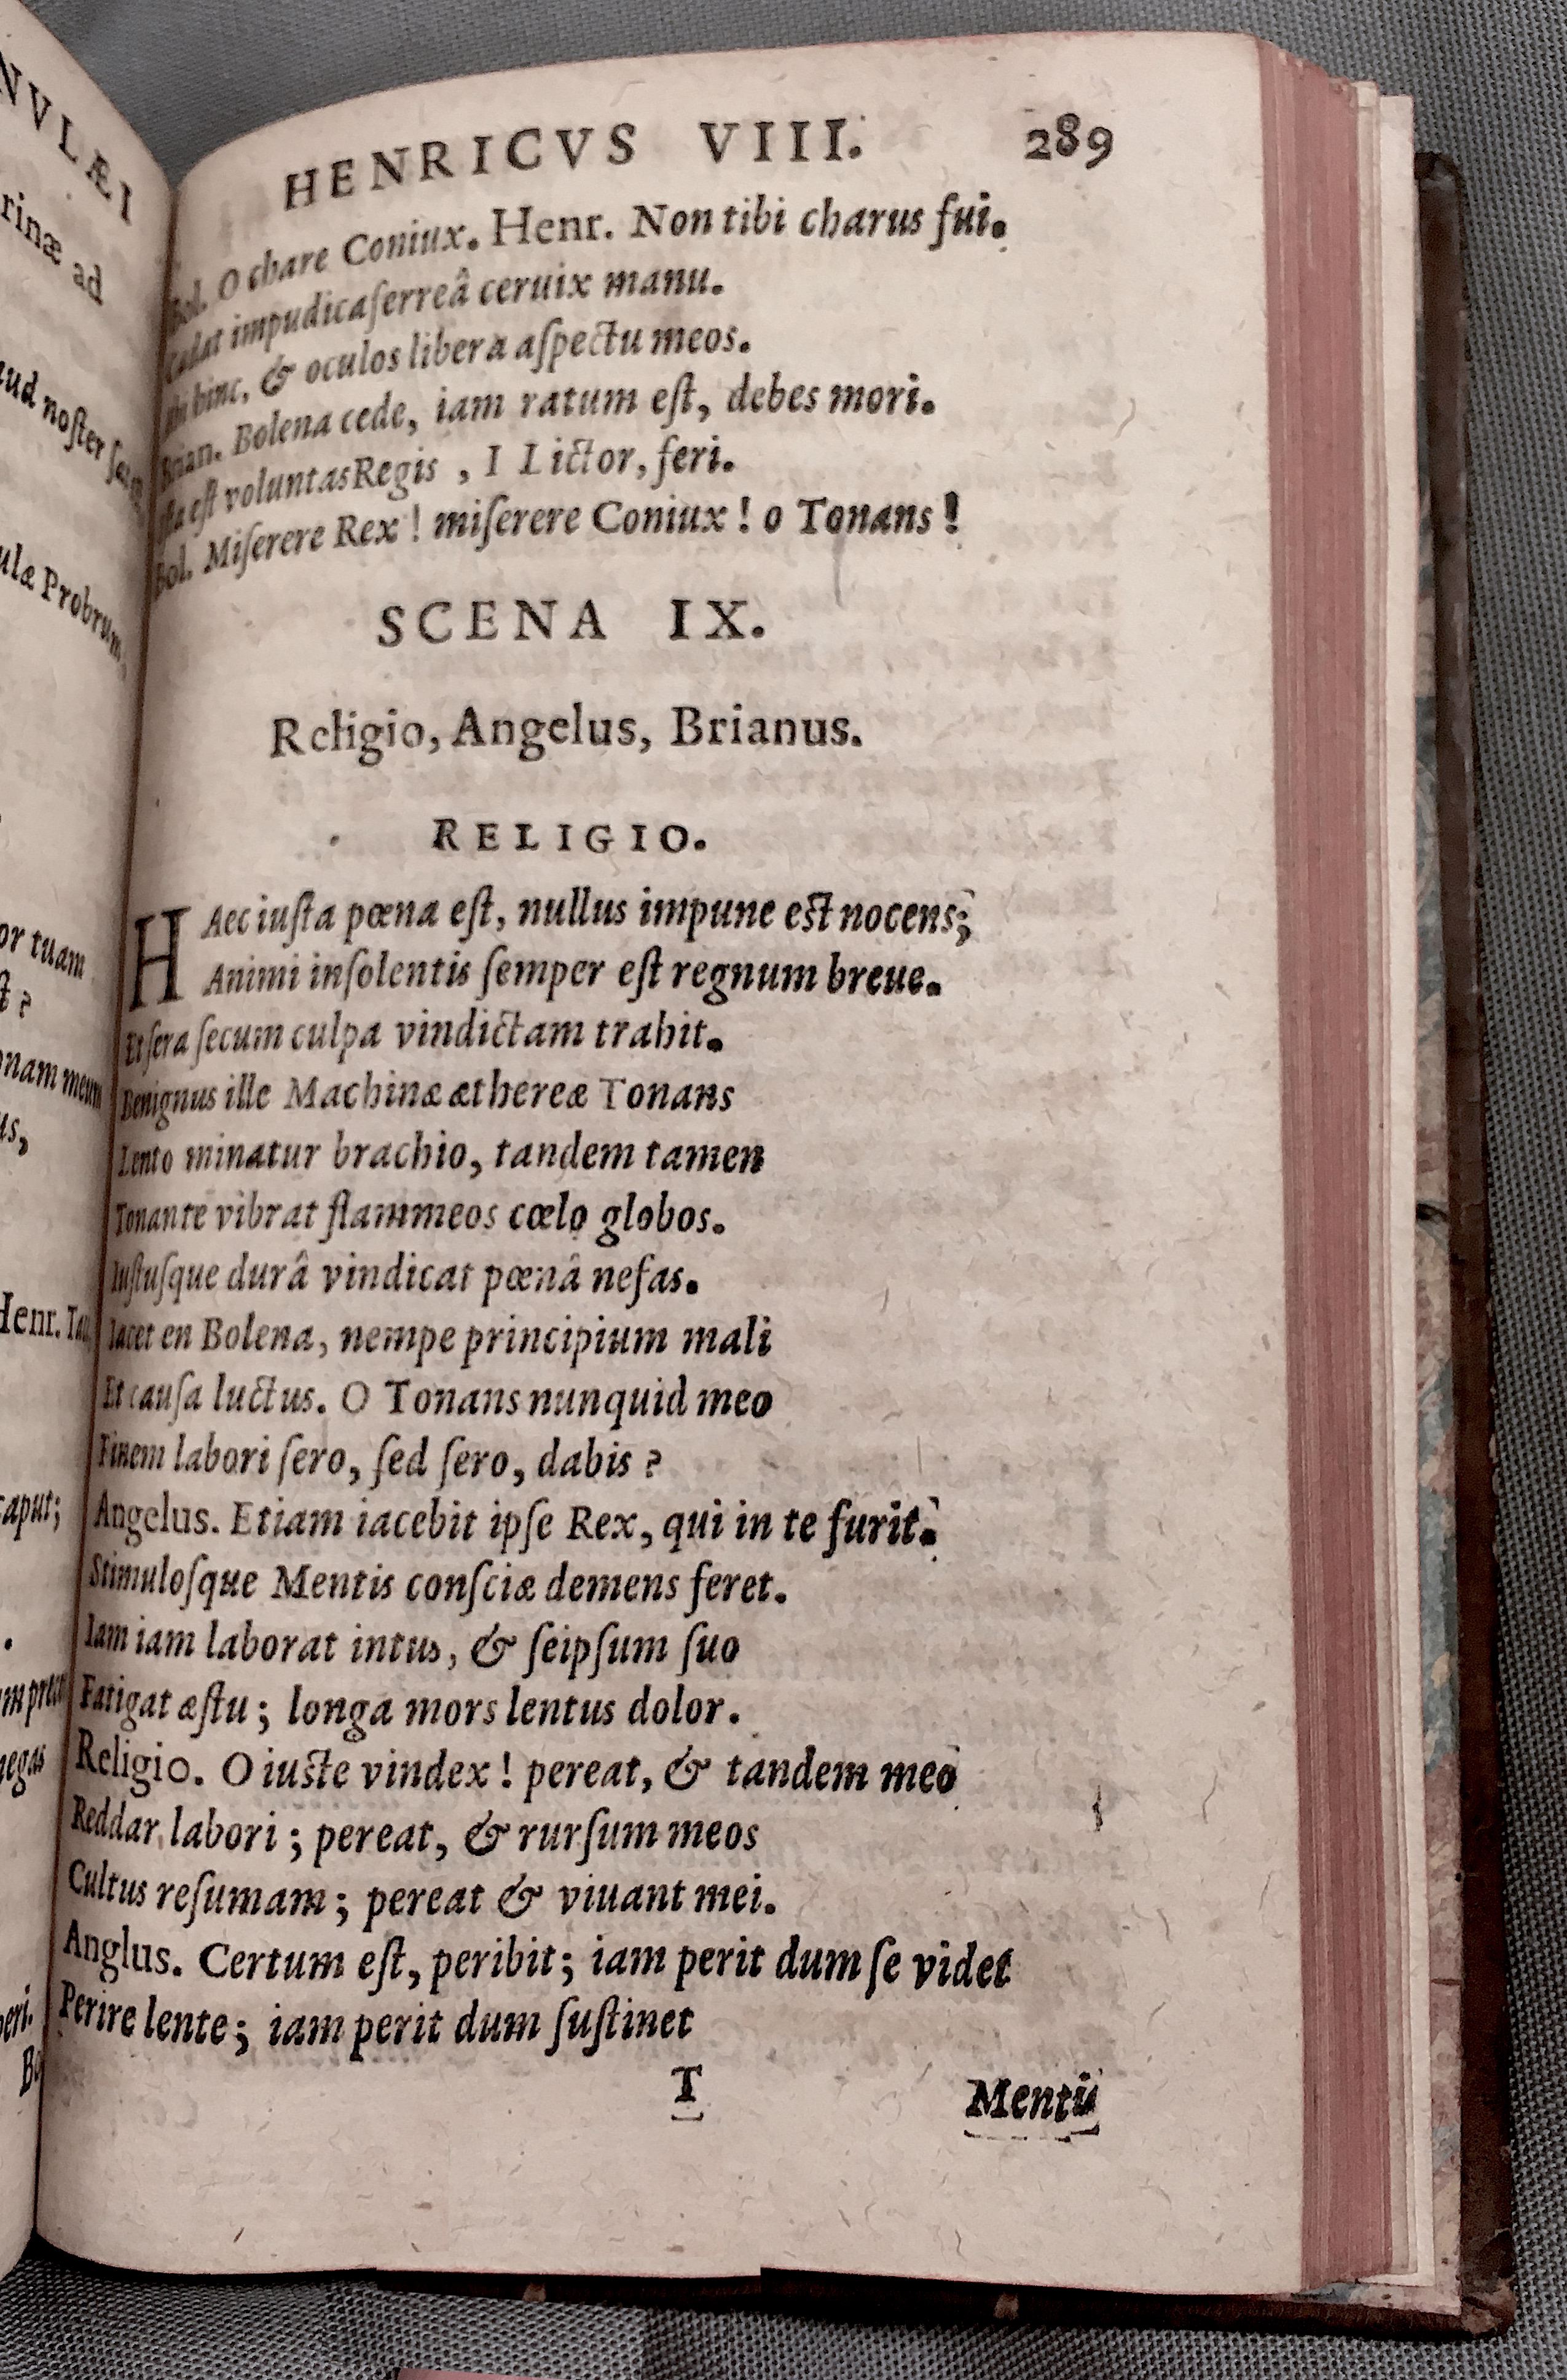 NVLÆI
rinæ ad
aud noſter
ulæ Probrum,
or tuam
ſt ?
onam meum
us,
Henr.
caput;
.
negas
peri.
Bo
HENRICVS VIII. 289
Bol. O chare Coniux. Henr. Non tibi charus fui.
Cadat impudica ferreâ ceruix manu.
Abi hinc, & oculos libera aſpectu meos.
Brian. Bolena cede, iam ratum eſt, debes mori.
Ita eſt voluntas Regis , I Lictor, feri.
Bol. Miſerere Rex ! miſerere Coniux ! o Tonans !
SCENA IX.
Religio, Angelus, Brianus.
RELIGIO.
HAec iuſta pœna eſt, nullus impune eſt nocens;
Animi inſolentis ſemper eſt regnum breue.
Et ſera ſecum culpa vindictam trahit.
Benignus ille Machinæ æthereæ Tonans
Lento minatur brachio, tandem tamen
Tonante vibrat flammeos cœlo globos.
Iuſtuſque durâ vindicat pœnâ nefas.
Iacet en Bolena, nempe principium mali
Et cauſa luctus. O Tonans nunquid meo
Finem labori ſero, ſed ſero, dabis ?
Angelus. Etiam iacebit ipſe Rex, qui in te furit.
Stimuloſque Mentis conſciæ demens feret.
Iam iam laborat intus, & ſeipſum ſuo
Fatigat æſtu ; longa mors lentus dolor.
Religio. O iuſte vindex ! pereat, & tandem meo
Reddar labori ; pereat, & rurſum meos
Cultus reſumam ; pereat & viuant mei.
Anglus. Certum eſt, peribit ; iam perit dum ſe videt
Perire lente ; iam perit dum ſuſtinet
T Mentis